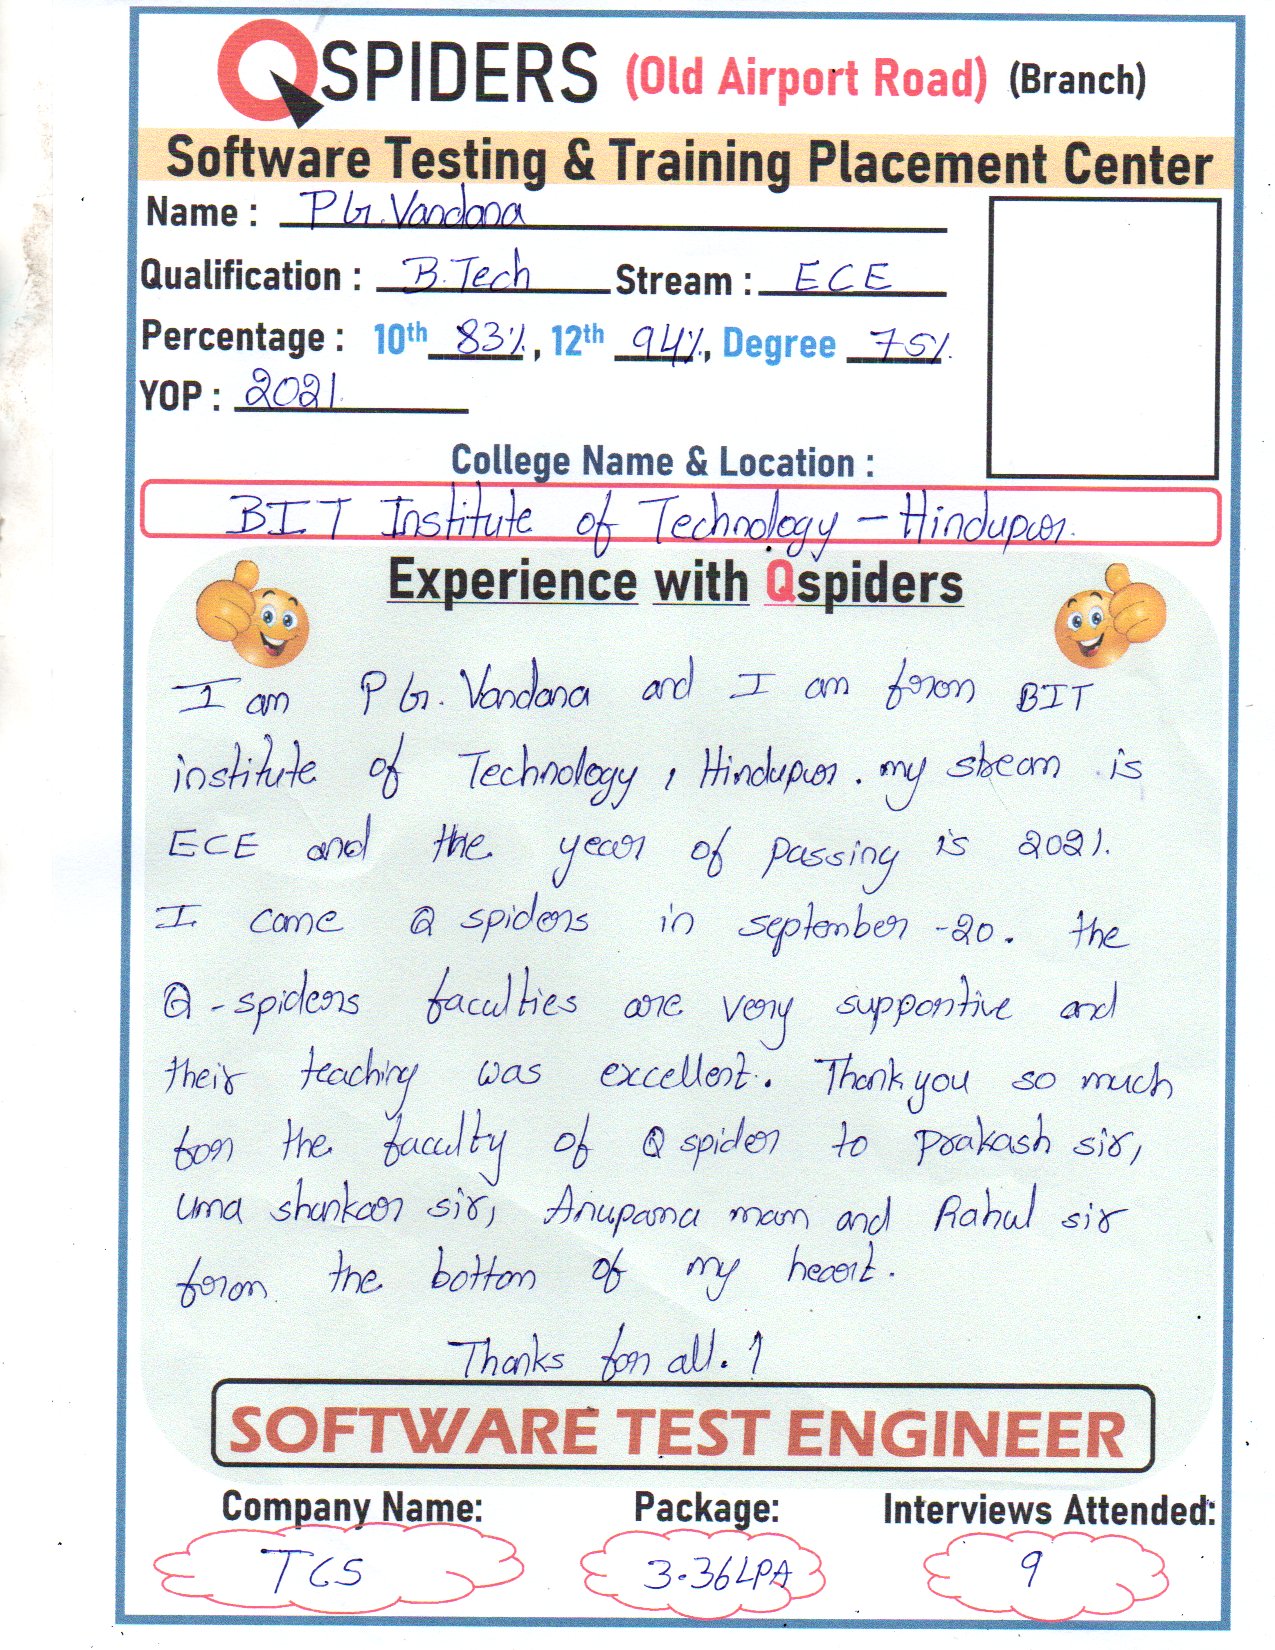 QSPIDERS (Old Airport Road) (Branch)
Software Testing & Training Placement Center
Name : P G. Vandana
Qualification : B.Tech Stream : ECE
Percentage : 10th 83%, 12th 94%, Degree 75%.
YOP : 2021.
College Name & Location :
BIT Institute of Technology - Hindupur.
Experience with Qspiders
I am P G. Vandana and I am from BIT
institute of Technology, Hindupur. my stream is
ECE and the year of passing is 2021.
I came Q spiders in september -20. the
Q-spiders faculties are very supportive and
their teaching was excellent. Thank you so much
for the faculty of Q spider to Prakash sir,
uma shankar sir, Anupama mam and Rahul sir
from the bottom of my heart.
Thanks for all. !
SOFTWARE TEST ENGINEER
Company Name: Package: Interviews Attended:
TCS 3.36LPA 9